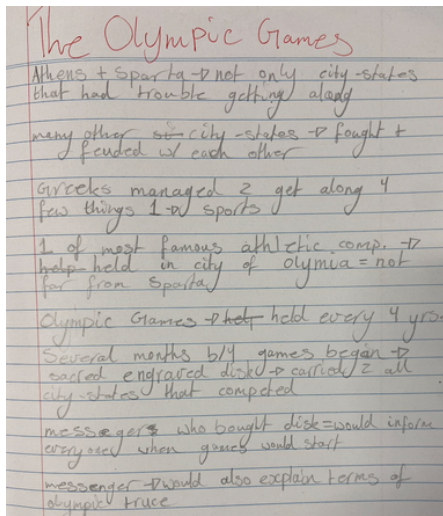 The Olympic Games
Athens + Sparta → not only city-states
that had trouble getting along
many other city-states → fought +
feuded w/ each other
Greeks managed 2 get along 4
few things 1 → sports
1 of most famous athletic comp. →
help held in city of olymia = not
far from Sparta
Olympic Games → held every 4 yrs.
Several months b/4 games began →
sacred engraved disk → carried 2 all
city-states that competed
messegers who bought disk = would inform
everyone when games would start
messenger → would also explain terms of
olympic truce